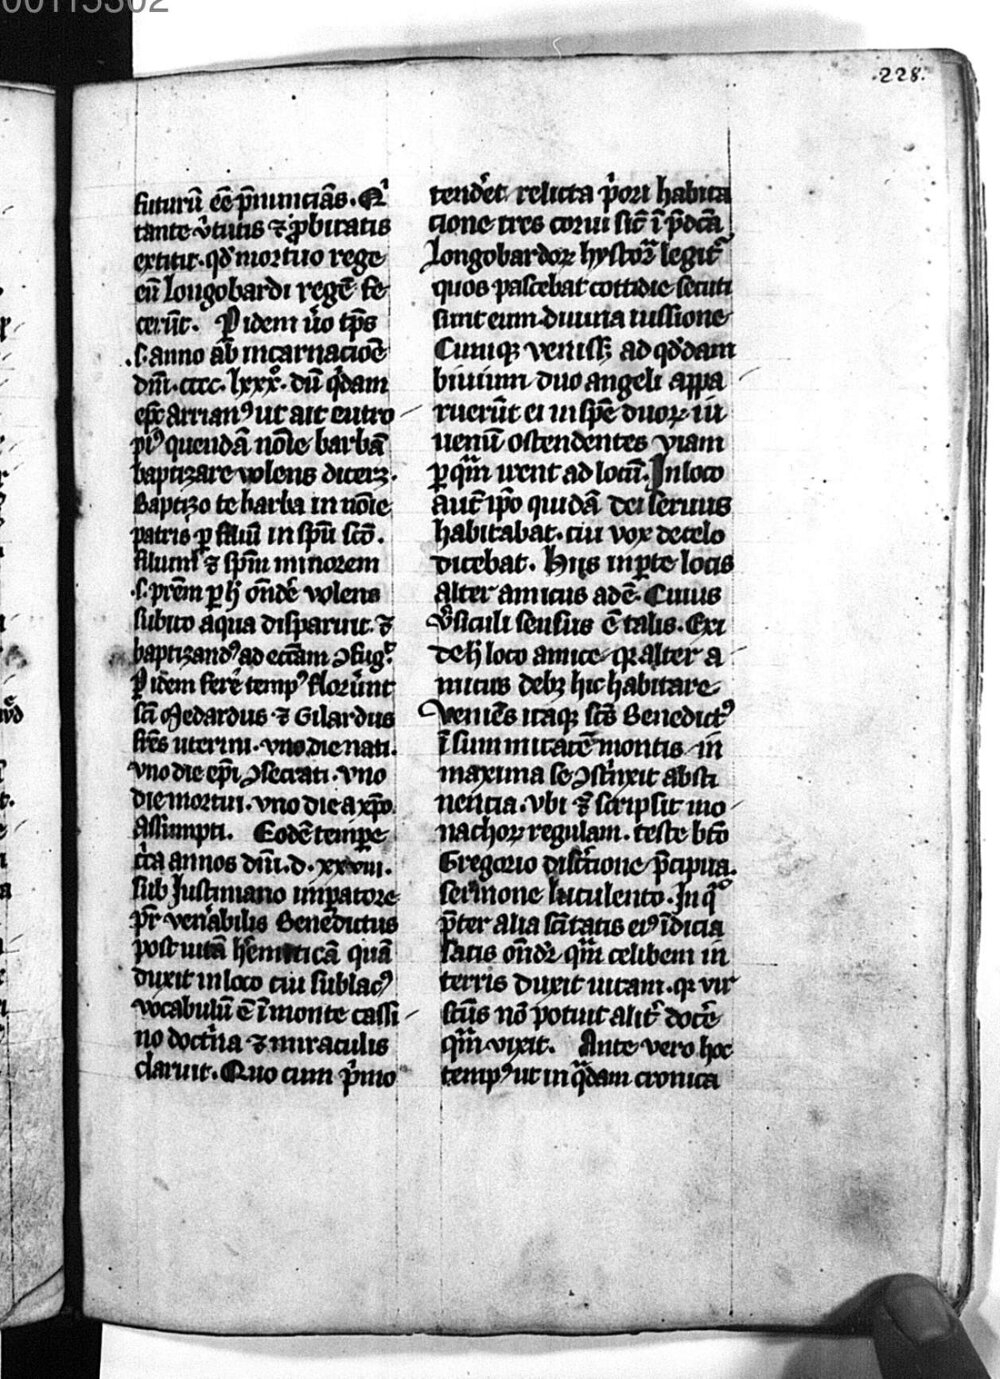 00115302
.228.
futurū eē p̄nuncians. Qͥ
tante v̓tutis ⁊ ꝓbitatis
extitit. qđ mortuo rege
eū longobardi regē fe
cerūt. P idem ṽo tp̄s
.s. anno ab incarnacioē
dn̄i. cccc. lxxxº. dū qͥdam
ep̄c arrianꝰ ut ait eutro
piꝰ quendā noīe barbā
baptizare volens dicerꝫ.
Baptizo te barba in noīe
patris ꝑ filiū in sp̄u sc̄o.
filium ⁊ sp̄m minorem
.s. pr̄em ꝑ hͦ on̄de̓ volens
subito aqua disparuit. ⁊
baptizandꝰ ad eccl̄am ꝯfugͭ.
P idem fere tempꝰ floru̓nt
sc̄i Medardus ⁊ Gilardus
fr̄es uterini. vno die nati.
vno die ep̄i ꝯsecrati. vno
die mortui. vno die a xp̄o
assumpti. Eodē temꝑe
cͥca annos dn̄i. d. xxviii.
sub Justiniano imꝑatore
pr̄ ven̓abilis Benedictus
post uitā he̓miticā quā
duxit in loco cui sublacꝰ
vocabulū ē ī monte cassi
no doctͥna ⁊ miraculis
claruit. Quo cum pͥmo
tende̓t relicta pͥori habita
cione tres corui sic̄ ī p̄dc̄a
longobardoꝝ hystoͥa legit̓
quos pascebat cottidie secuti
sunt eum diuina iussione
Cumqꝫ venissꝫ ad qđdam
biuium duo angeli appa
ruerūt ei in spē duoꝝ iu
uenū ostendentes viam
ꝑ qͣm iret ad locū. In loco
aut̄ ip̄o quidā dei seruus
habitabat. cui vox de celo
dicebat. Hijs in ꝑte locis
alter amicus adē. Cuius
v̓siculi sensus ē talis. Exi
de hͦ loco amice qꝛ alter a
micus debꝫ hic habitare
Veniēs itaqꝫ sc̄s Benedictꝰ
ī summitatē montis in
maxima se ꝯstͥnxit absti
nencia. vbi ⁊ scripsit mo
nachoꝝ regulam. teste bt̄o
Gregorio discͤtione p̄cipua.
sermone luculento. In qͦ
p̄ter alia sc̄itatis eiꝰ īdicia
satis on̄dit̓ qͣm celibem in
terris duxit uitam. qꝛ vir
sc̄us nō potuit alit̓ doce̓
qͣm vixit. Ante vero hoc
tempꝰ ut in qͣdam cronica